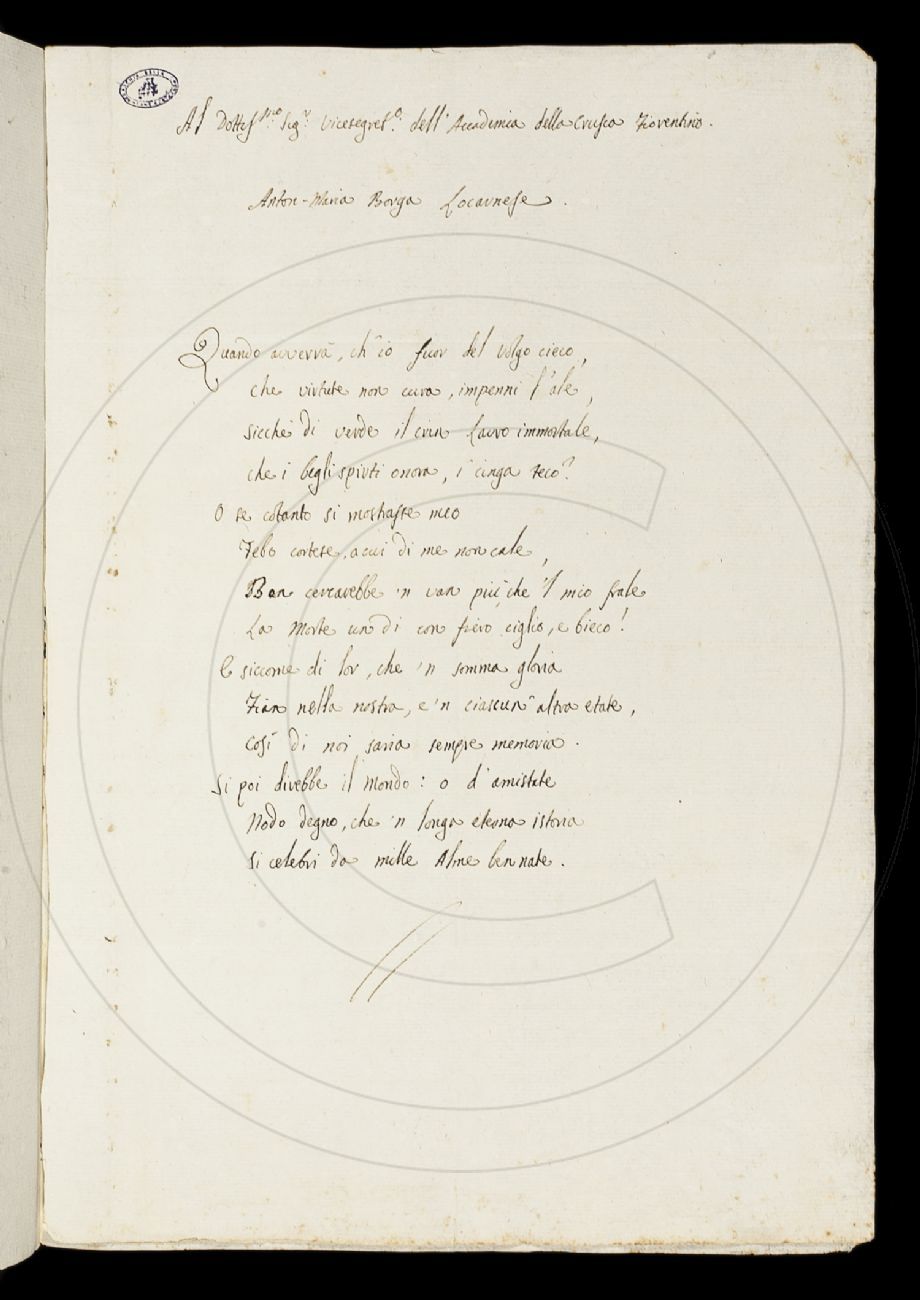 Al Dottiss.mo Sig.r Vicesegret.o dell' Accademia della Crusca Fiorentino.
Anton-Maria Borga Locarnese.
Quando avverrà, ch' io fuor del volgo cieco,
che virtute non cura, impenni l' ale,
sicchè di verde il crin Lauro immortale,
che i begli spirti onora, i' cinga teco?
O se cotanto si mostrasse meco
Febo cortese, a cui di me non cale,
Ben cercarebbe 'n van più, che 'l mio frale
La Morte un dì con fiero ciglio, e bieco!
E siccome di lor, che 'n somma gloria
Fian nella nostra, e 'n ciascun' altra etate,
Così di noi saria sempre memoria.
Si poi direbbe il Mondo: o d' amistate
Nodo degno, che 'n longa eterna istoria
Si celebri da mille Alme ben nate.